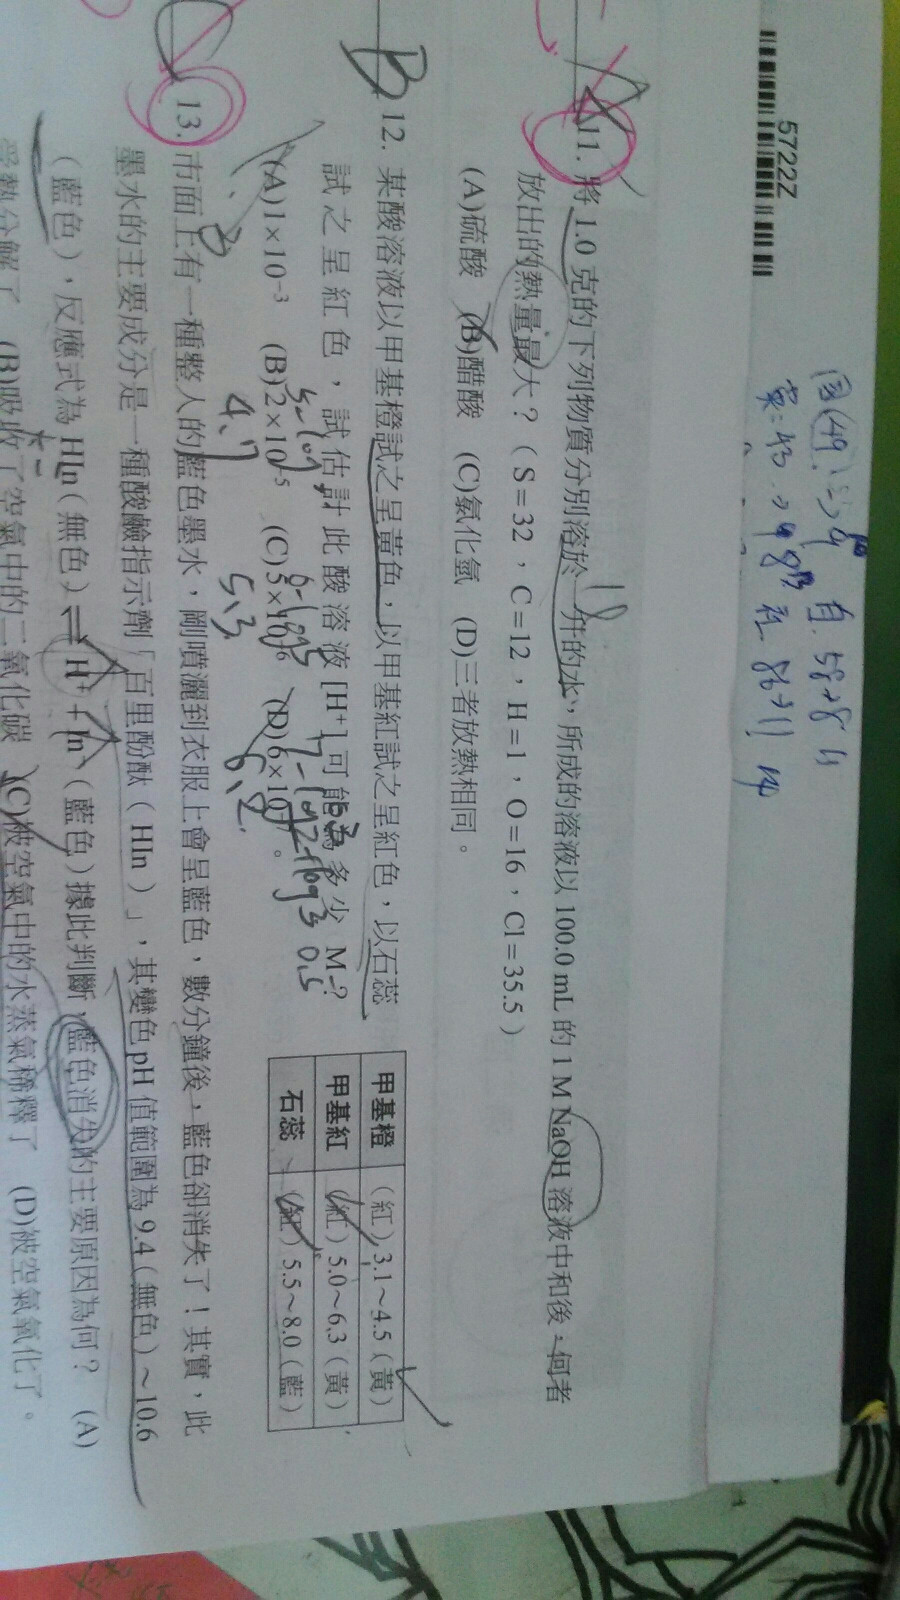 5722Z
11. 將 1.0 克的下列物質分別溶於一升的水,所成的溶液以 100.0 mL 的 1 M NaOH 溶液中和後,何者
放出的熱量最大?(S=32,C=12,H=1,O=16,Cl=35.5)
(A)硫酸 (B)醋酸 (C)氯化氫 (D)三者放熱相同。
B
12. 某酸溶液以甲基橙試之呈黃色,以甲基紅試之呈紅色,以石蕊
試之呈紅色,試估計此酸溶液[H⁺]可能為多少 M?
(A)1×10⁻³ (B)2×10⁻⁵ (C)5×10⁻⁶ (D)6×10⁻⁷。
4.7
5.3
6.2
甲基橙 (紅)3.1~4.5(黃)
甲基紅 (紅)5.0~6.3(黃)
石蕊 (紅)5.5~8.0(藍)
13. 市面上有一種整人的藍色墨水,剛噴灑到衣服上會呈藍色,數分鐘後,藍色卻消失了!其實,此
墨水的主要成分是一種酸鹼指示劑「百里酚酞(HIn)」,其變色 pH 值範圍為 9.4(無色)~10.6
(藍色),反應式為 HIn(無色)⇌ H⁺+In⁻(藍色)據此判斷,藍色消失的主要原因為何? (A)
受熱分解了 (B)吸收了空氣中的二氧化碳 (C)被空氣中的水蒸氣稀釋了 (D)被空氣氧化了。